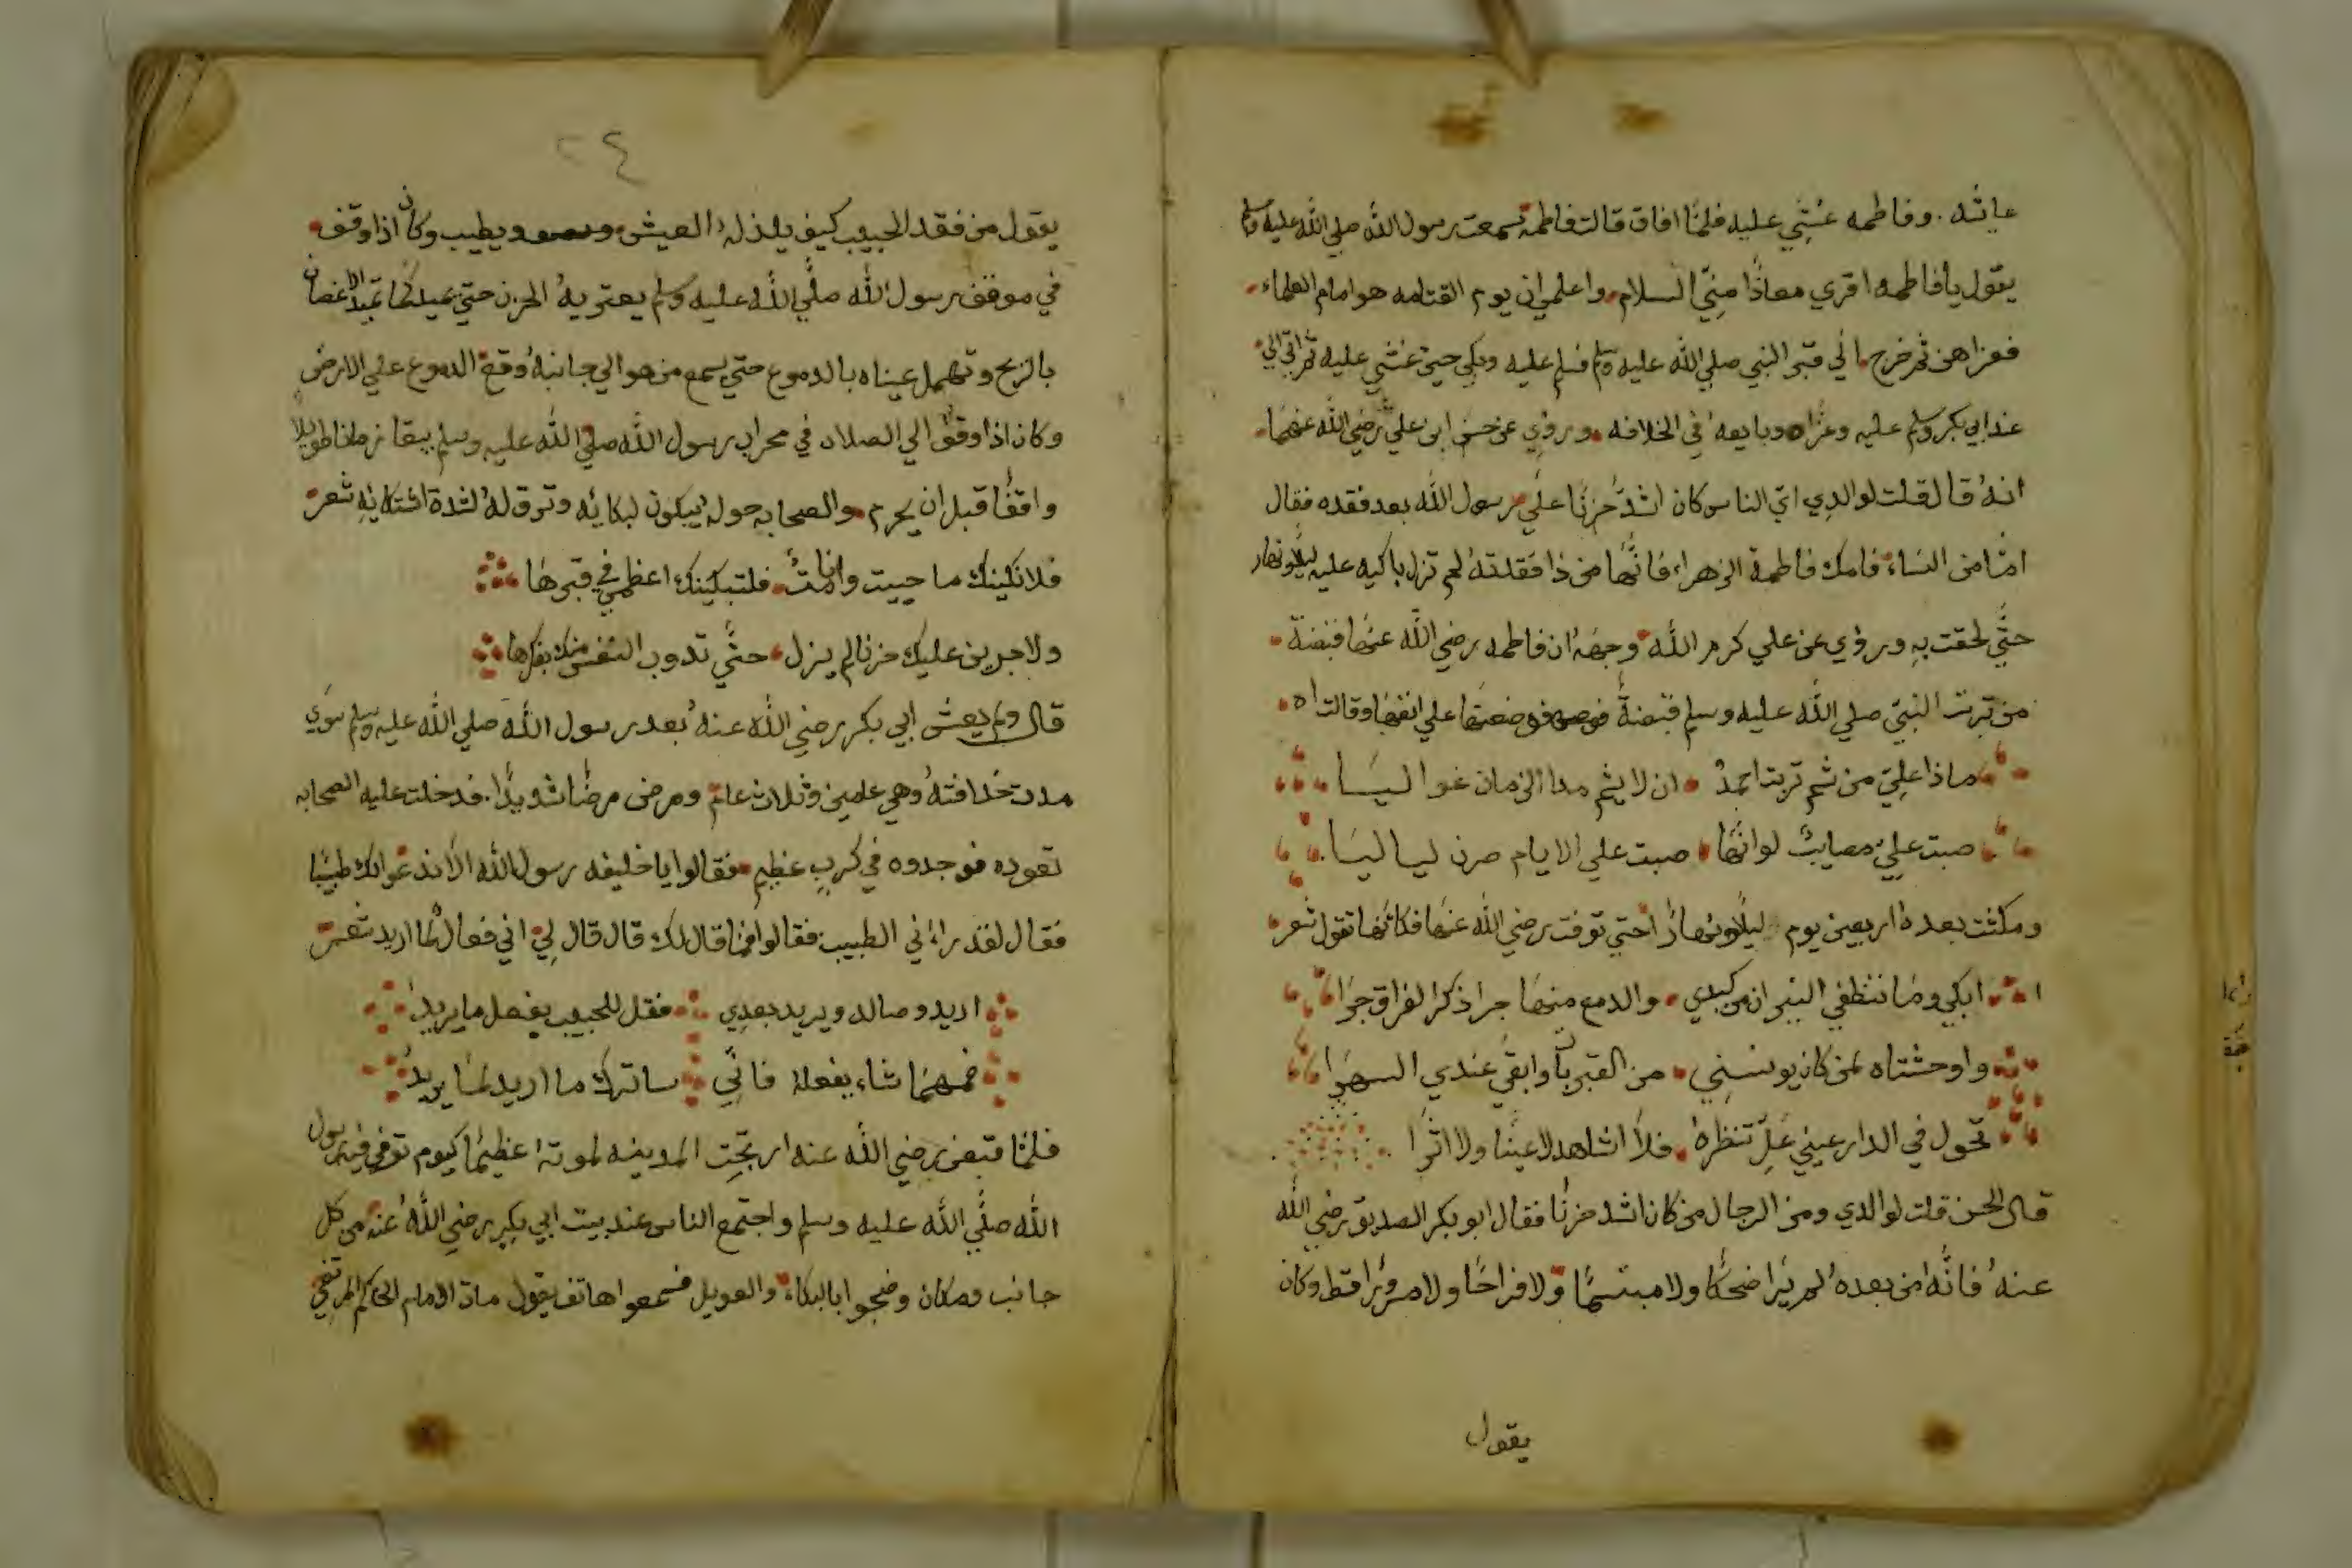 عايشه . وفاطمه غشي عليه فلما افاق قالت فاطمة سمعت رسول الله صلي الله عليه وسلم
يقول يا فاطمه اقري معاذا مني السلام واعلمي ان يوم القتامه هو امام العلماء
فعزاهن ثم خرج الي قبر النبي صلي الله عليه وسلم فسلم عليه وبكي حتي غشي عليه ثم اتي الي
عند ابي بكر وسلم عليه وعزاه وبايعه في الخلافه وروي عن حسن ابن علي رضي الله عنهما
انه قال قلت لوالدي اي الناس كان اشد حزنا علي رسول الله بعد فقده فقال
اما من النساء فامك فاطمة الزهراء فانها من ذا فقدته لم تزل باكيه عليه ليلا ونهار
حتي لحقت به وروي عن علي كرم الله وجهه ان فاطمه رضي الله عنها قبضة
من تربت النبي صلي الله عليه وسلم قبضة فوضعتها علي انفها وقالت اه
ماذا علي من شم تربت احمد ان لا يشم مدا الزمان غواليسا
صبت علي مصايب لوانها صبت علي الايام صرن لياليسا
ومكثت بعده اربعين يوم ليلا ونهارا حتي توفت رضي الله عنها فكانها تقول شعر
ابكي وما تنطفي النيران من كبدي والدمع منها جرا ذكر الفراق جرا
واوحشتاه لمن كان يونسني من القبر بان وابقي عندي السهرا
تحول في الدار عيني عل تنظره فلا اشاهد لا عينا ولا اثرا
قال الحسن قلت لوالدي ومن الرجال من كان اشد حزنا فقال ابو بكر الصديق رضي الله
عنه فانه من بعده لم يرا ضحكا ولا مبتسما ولا فراحا ولا مسرورا قط وكان
يقول
٢٤
يقول من فقد الحبيب كيف يلذ له العيش ويطيب وكان اذا وقف
في موقف رسول الله صلي الله عليه وسلم يعتريه الحزن حتي يميل كما تميد الاغصان
بالريح وتهمل عيناه بالدموع حتي يسمع من هو الي جانبه وقع الدموع علي الارض
وكان اذا وقف الي الصلاه في محراب رسول الله صلي الله عليه وسلم يبقا زمانا طويلا
واقفا قبل ان يحرم والصحابه حوله يبكون لبكايه وترق له لشدة اشتكايه شعر
فلابكينك ما حييت وان امت فلتبكينك اعظمي في قبرها
ولاجرين عليك حزنا لم يزل حتي تدوب النفس منك بفكرها
قال ولم يعش ابي بكر رضي الله عنه بعد رسول الله صلي الله عليه وسلم سوي
مدت خلافته وهي عامين وثلاث عام ومرض مرضا شديدا . فدخلت عليه الصحابه
تعوده فوجدوه في كرب عظيم فقالوا يا خليفه رسول الله الا ندعوا لك طبيبا
فقال لقد راءني الطبيب فقالوا فما قال لك قال قال لي اني فعال لما اريد شعر
اريد وصاله ويريد بعدي فقل للحبيب يفعل ما يريد
فمهما شاء يفعله فاني ساترك ما اريد لما يريد
فلما قبض رضي الله عنه ارتجت المدينه لموته عظيما كيوم توفي فيه رسول
الله صلي الله عليه وسلم واجتمع الناس عند بيت ابي بكر رضي الله عنه من كل
جانب ومكان وضجوا بالبكاء والعويل فسمعوا هاتف يقول مات الامام الحاكم المرتضي